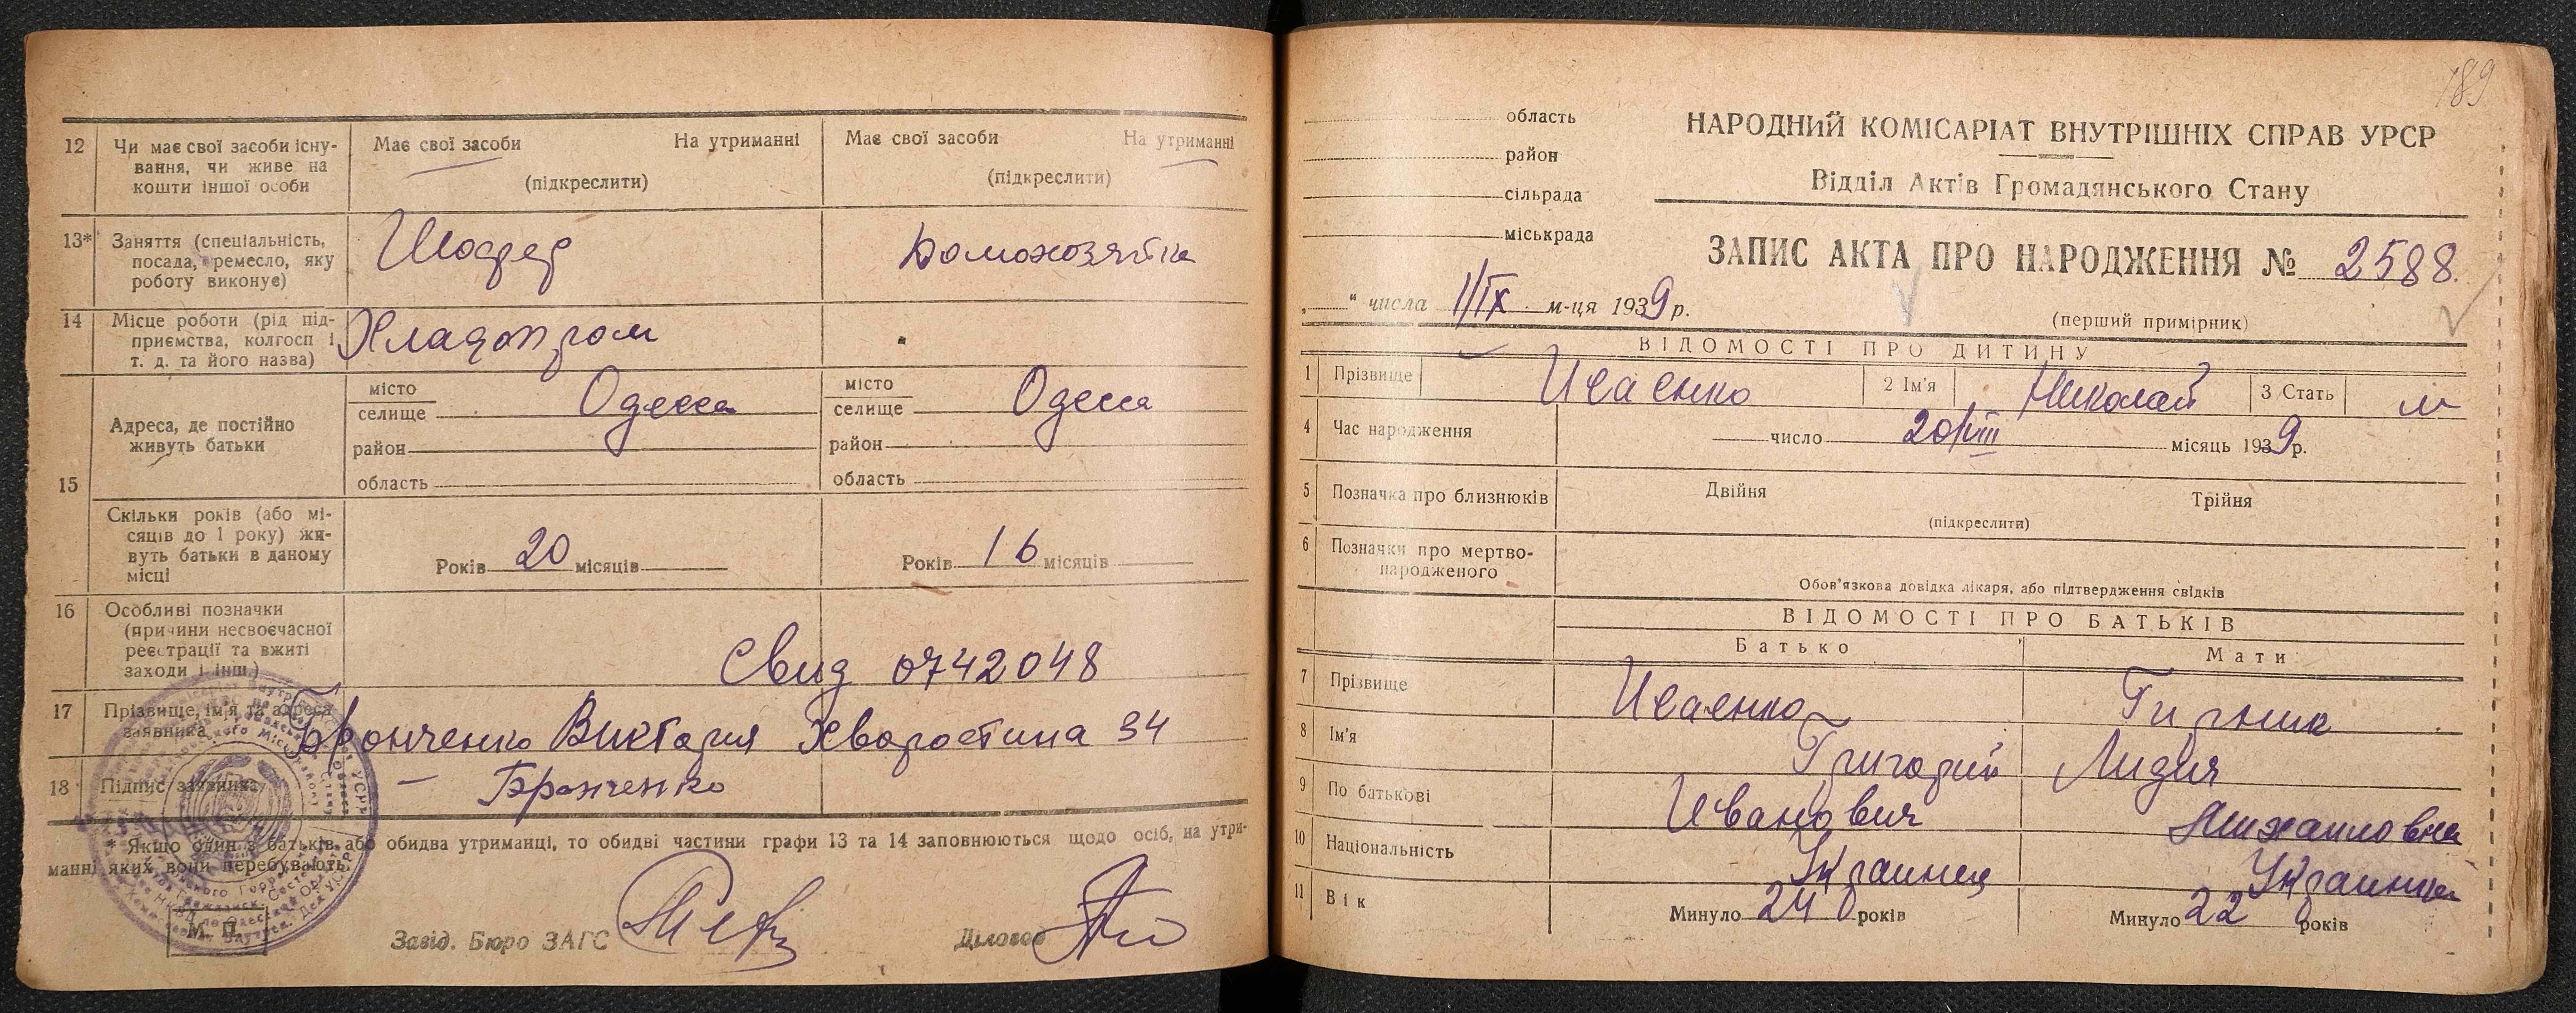 12 Чи має свої засоби існу-
вання, чи живе на
кошти іншої особи
Має свої засоби На утриманні
(підкреслити)
Має свої засоби На утриманні
(підкреслити)
13* Заняття (спеціальність,
посада, ремесло, яку
роботу виконує)
Шофер
Домохозяйка
14 Місце роботи (рід під-
приємства, колгосп і
т. д. та його назва)
Хладопром
"
15 Адреса, де постійно
живуть батьки
місто
селище Одесса
район
область
місто
селище Одесса
район
область
Скільки років (або мі-
сяців до 1 року) жи-
вуть батьки в даному
місці
Років 20 місяців
Років 16 місяців
16 Особливі позначки
(причини несвоєчасної
реєстрації та вжиті
заходи і інш.)
Свид 0742048
17 Прізвище, ім'я та адреса
заявника
Бронченко Виктория Хворостина 34
18 Підпис заявника
Бронченко
* Якщо один з батьків або обидва утриманці, то обидві частини графи 13 та 14 заповнюються щодо осіб, на утри-
манні яких вони перебувають.
М. П.
Завід. Бюро ЗАГС
Діловод
189
область
район
сільрада
міськрада
НАРОДНИЙ КОМІСАРІАТ ВНУТРІШНІХ СПРАВ УРСР
Відділ Актів Громадянського Стану
ЗАПИС АКТА ПРО НАРОДЖЕННЯ № 2588.
„ “ числа 1/IX м-ця 1939 р.
(перший примірник)
ВІДОМОСТІ ПРО ДИТИНУ
1 Прізвище Исаенко 2 Ім'я Николай 3 Стать м
4 Час народження число 20/VIII місяць 1939 р.
5 Позначка про близнюків Двійня Трійня
(підкреслити)
6 Позначки про мертво-
народженого
Обов'язкова довідка лікаря, або підтвердження свідків
ВІДОМОСТІ ПРО БАТЬКІВ
Батько Мати
7 Прізвище Исаенко Гирник
8 Ім'я Григорий Лидия
9 По батькові Иванович Михайловна
10 Національність Украинец Украинка
11 Вік Минуло 24 років Минуло 22 років